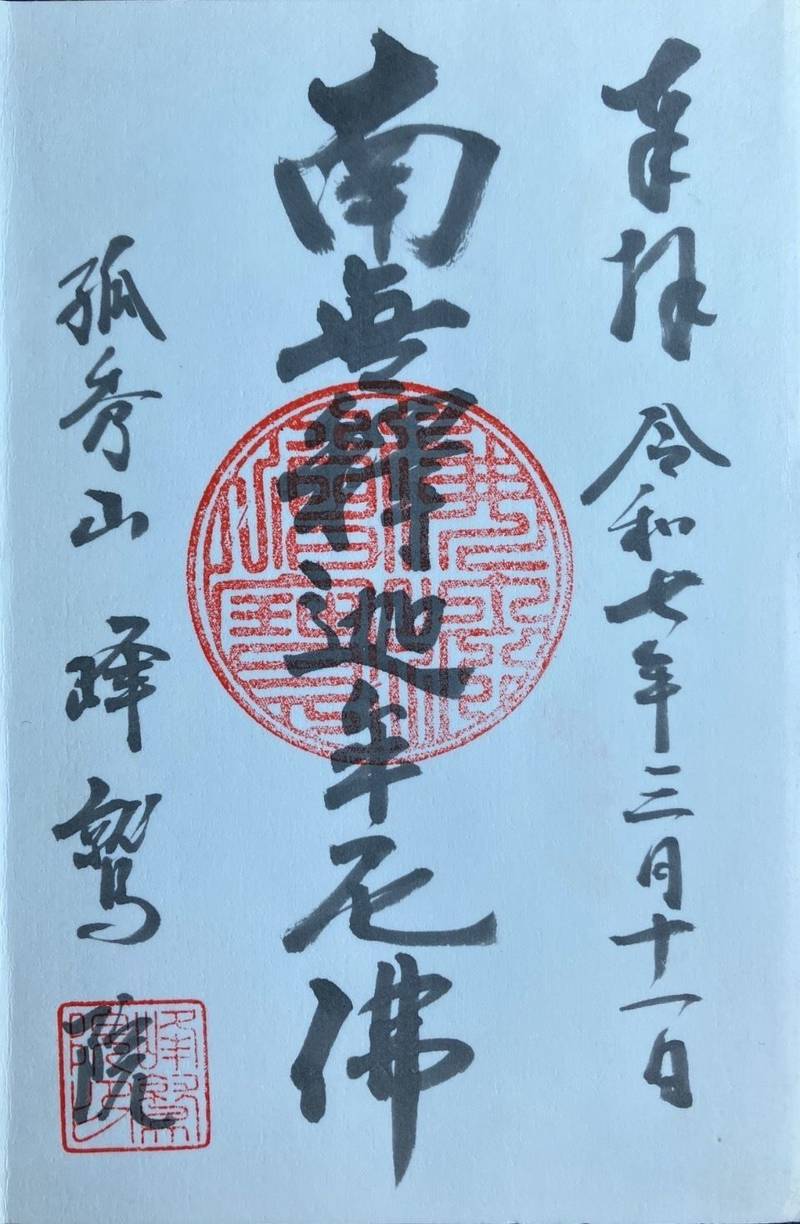 奉拝 令和七年三月十一日
南無釋迦牟尼佛
孤秀山 峰鷲院